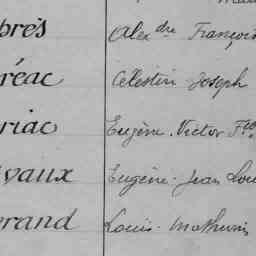 près Alex dre François
réac Célestin Joseph
riac Eugène. Victor Fçois
vaux Eugène. Jean Lou
rand Louis. Mathurin